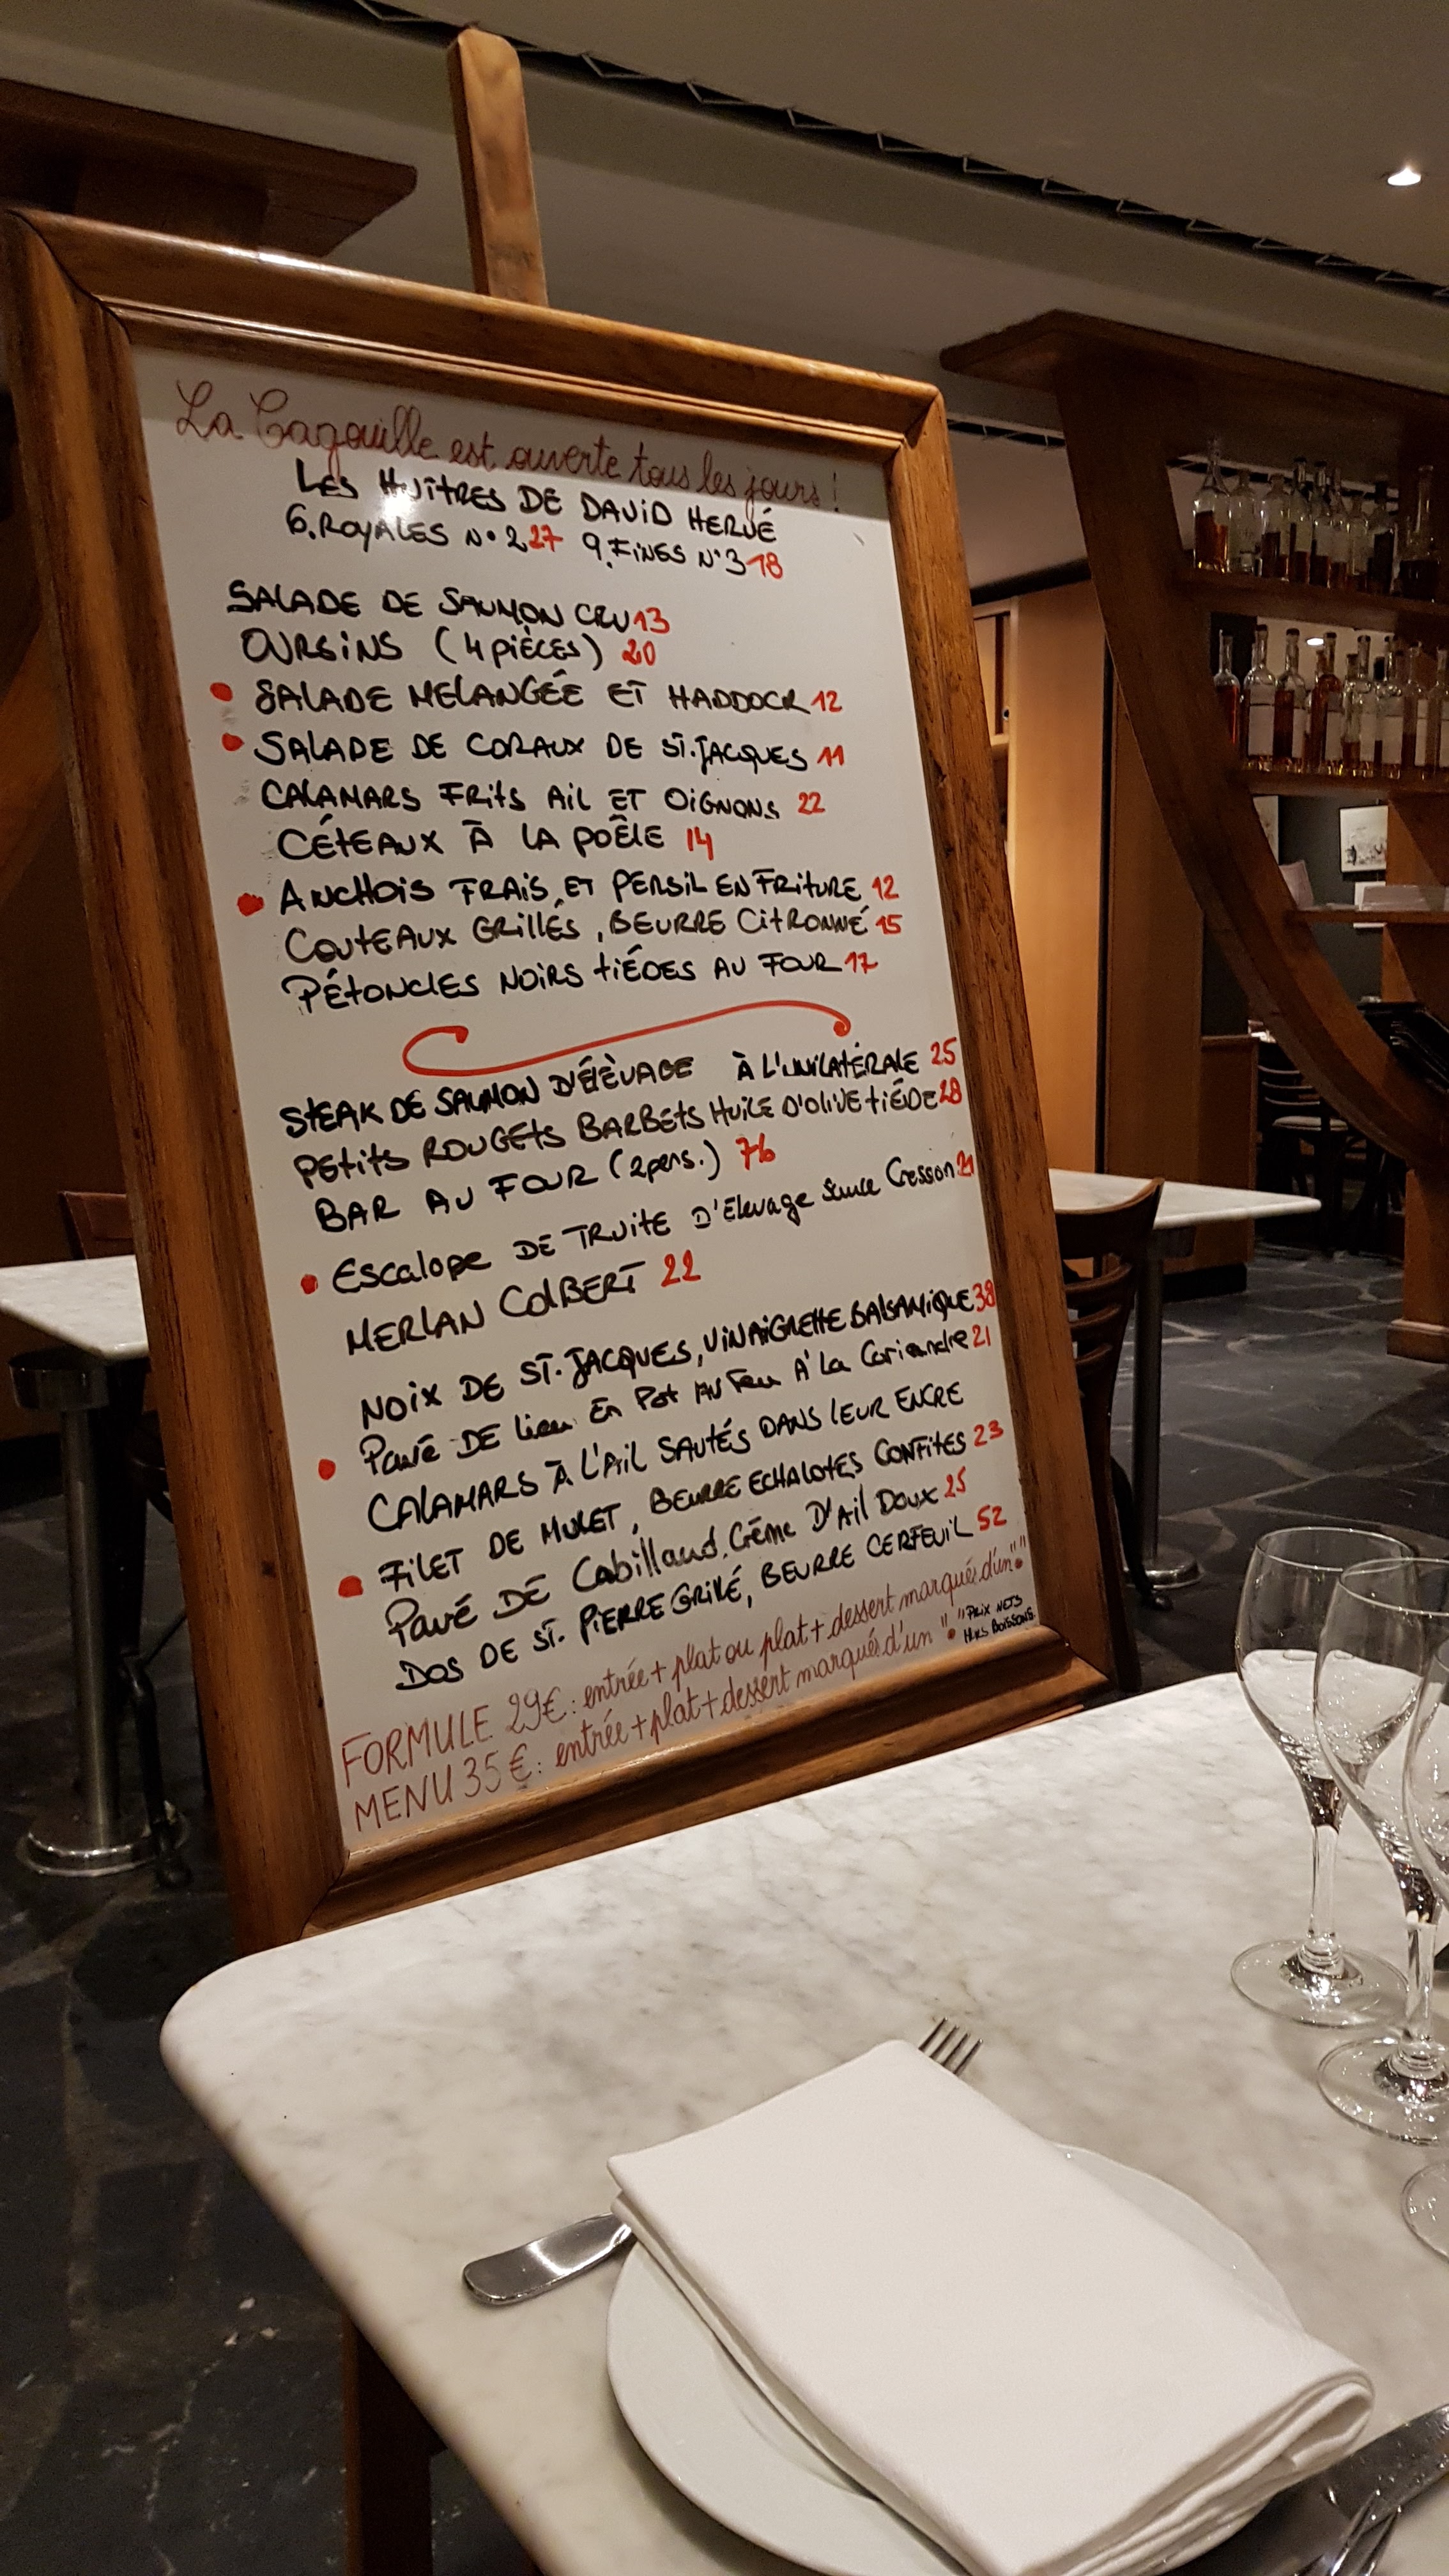 La Cagouille est ouverte tous les jours !
LES HUÎTRES DE DAVID HERVÉ
6.ROYALES N°2 27 9.FINES N°3 18
SALADE DE SAUMON CRU 13
OURSINS (4 PIÈCES) 20
• SALADE MELANGÉE ET HADDOCK 12
• SALADE DE CORAUX DE ST.JACQUES 11
CALAMARS FRITS AIL ET OIGNONS 22
CÉTEAUX À LA POÊLE 14
• ANCHOIS FRAIS ET PERSIL EN FRITURE 12
COUTEAUX GRILLÉS, BEURRE CITRONNÉ 15
PÉTONCLES NOIRS TIÉDES AU FOUR 17
STEAK DE SAUMON D'ÉLÈVAGE À L'UNILATÉRALE 25
PETITS ROUGETS BARBETS HUILE D'OLIVE TIÉDE 28
BAR AU FOUR (2 pers.) 76
• Escalope DE TRUITE D'Elevage Sauce Cresson 21
MERLAN COLBERT 22
NOIX DE ST.JACQUES, VINAIGRETTE BALSAMIQUE 38
• Pavé DE Lieu En Pot AU Feu À La Coriandre 21
CALAMARS À L'AIL SAUTÉS DANS LEUR ENCRE
• FILET DE MULET, BEURRE ECHALOTES CONFITES 23
PAVÉ DE Cabillaud, Crème D'Ail Doux 25
DOS DE ST. PIERRE GRILLÉ, BEURRE CERFEUIL 52
FORMULE 29€: entrée + plat ou plat + dessert marqués d'un "•"
MENU 35€: entrée + plat + dessert marqués d'un "•"
PRIX NETS
HORS BOISSONS